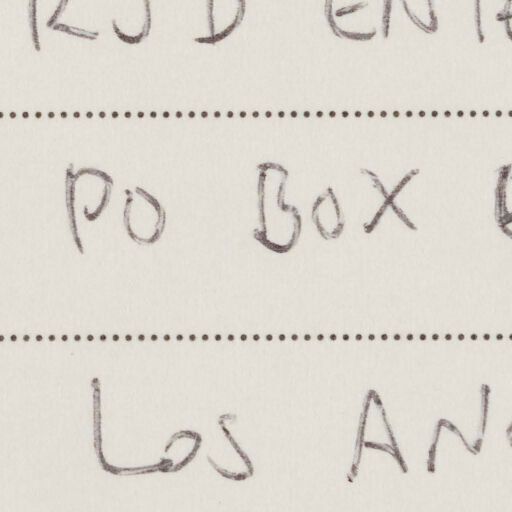 RJD ENT
PO BOX
LOS AN